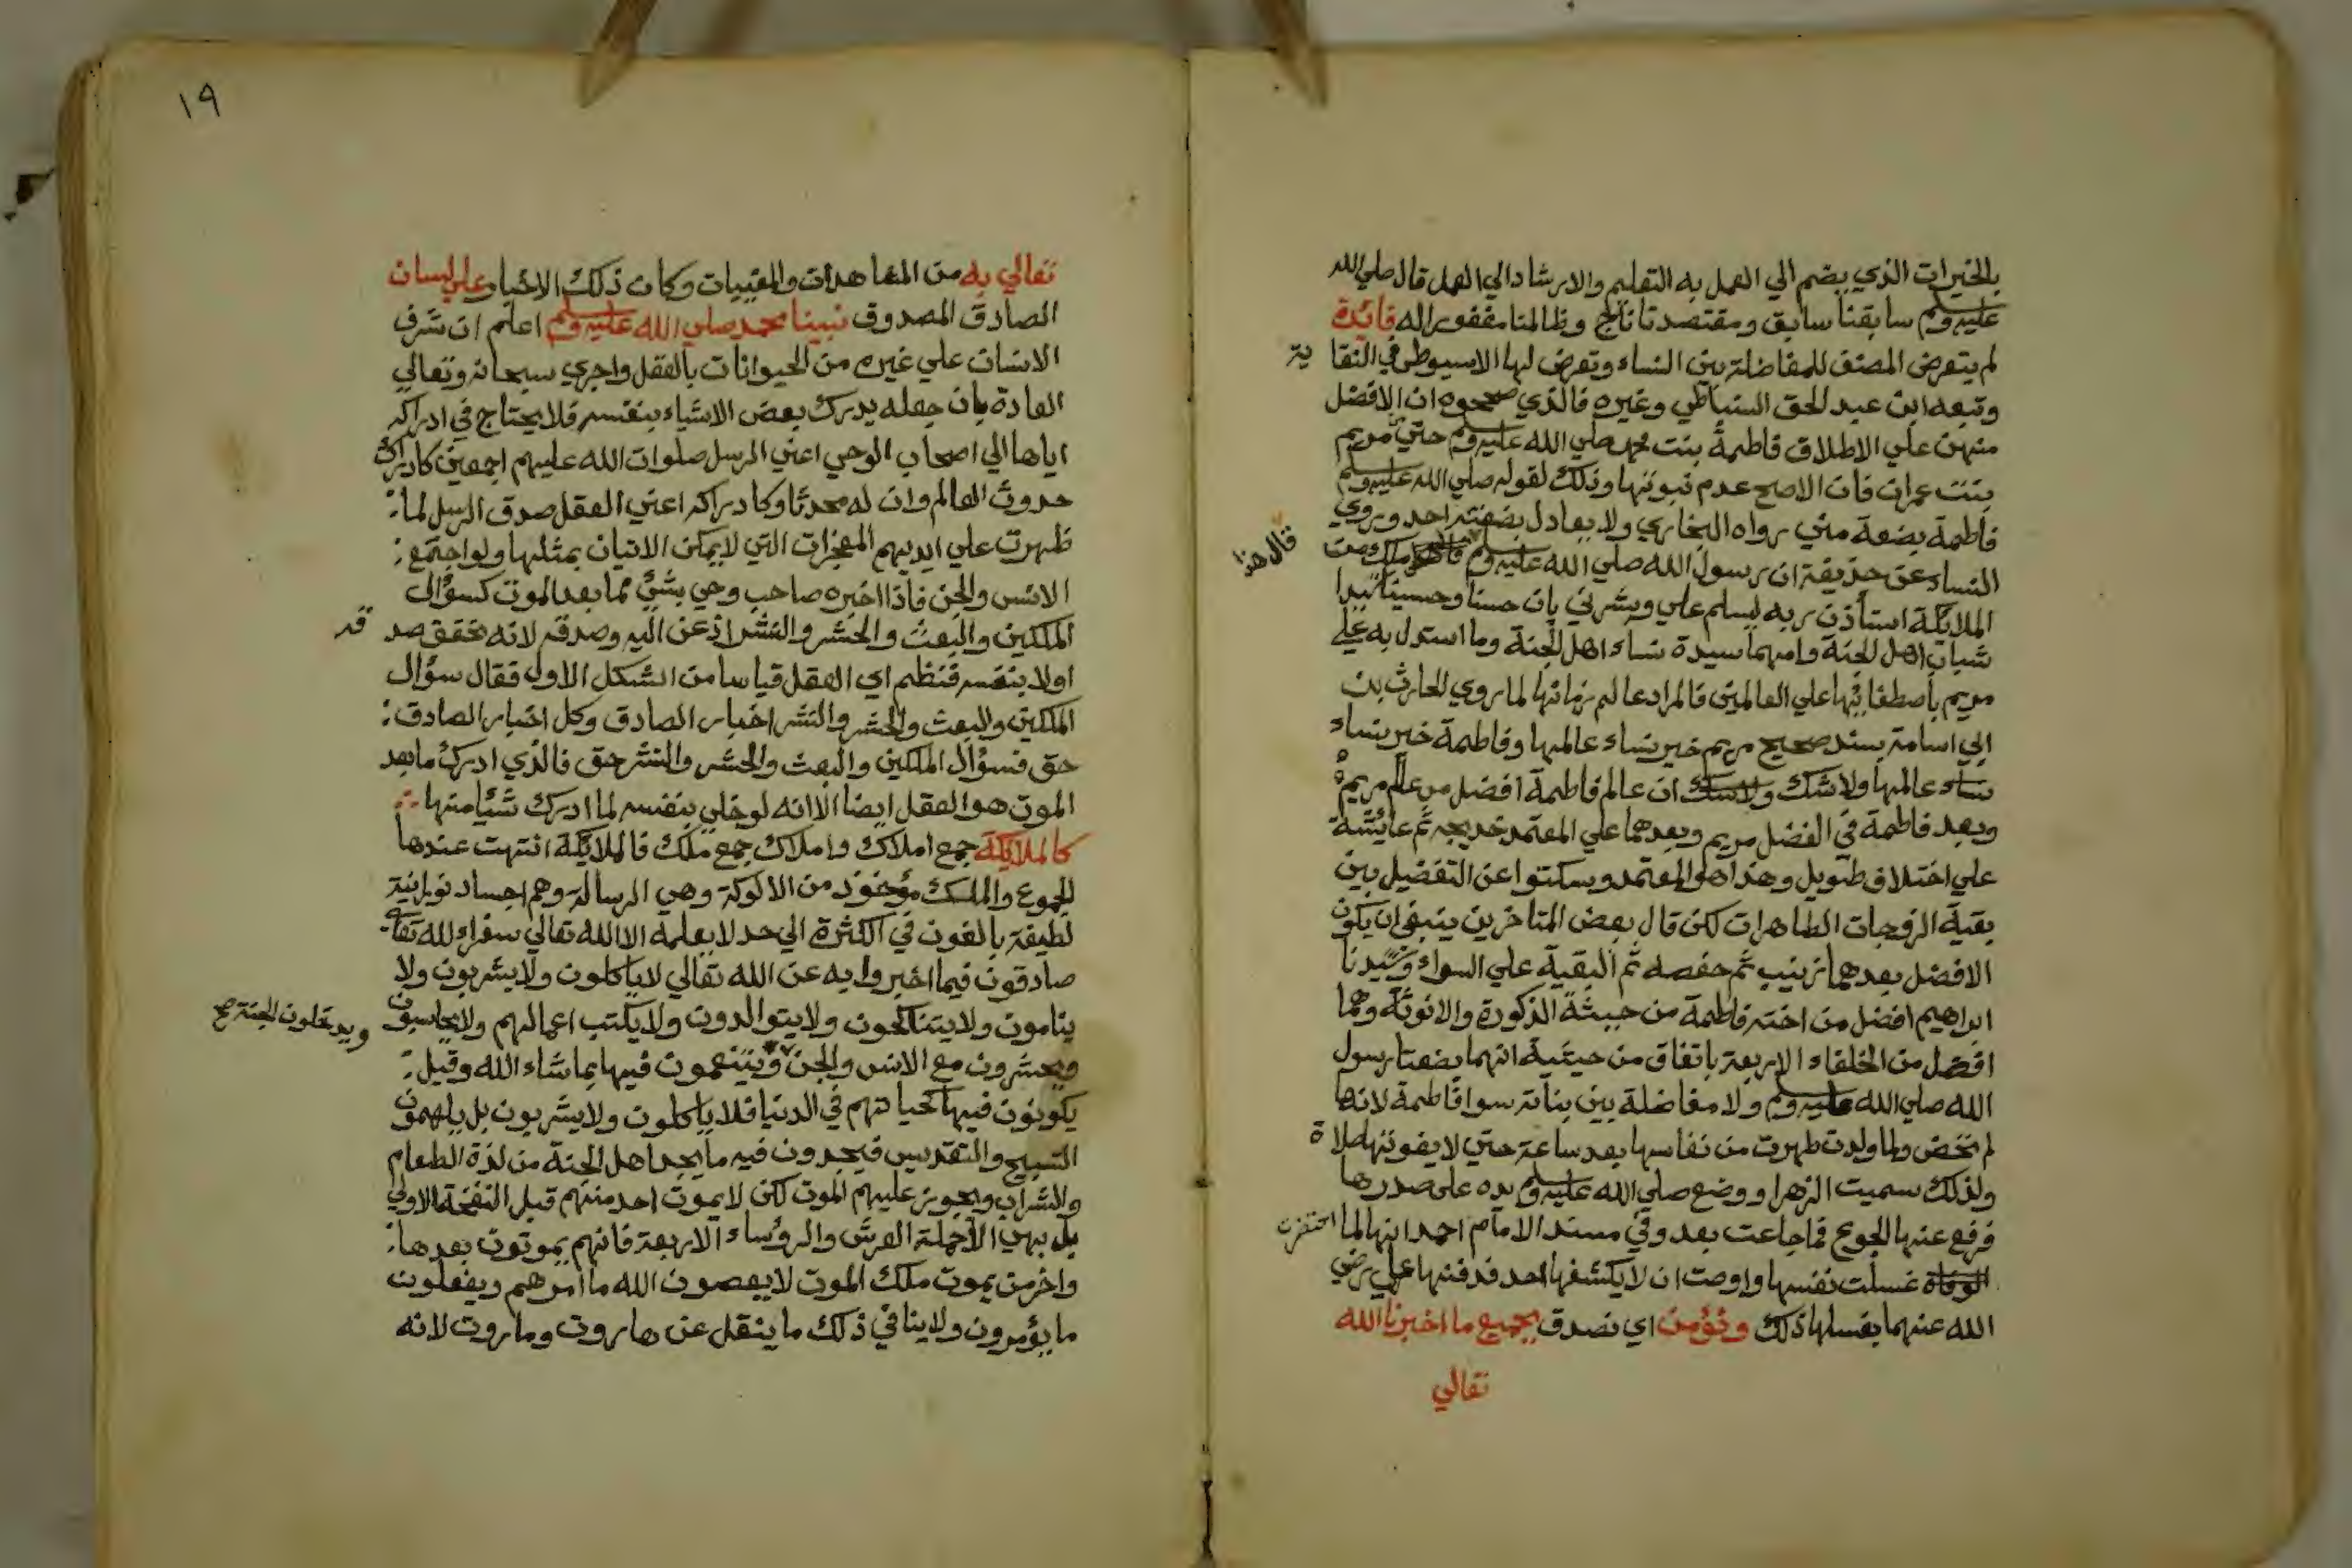 بالخيرات الذي يضم الي العمل به التعليم والارشاد الي العمل قال صلي الله
عليه وسلم سابقنا سابق ومقتصدنا ناج وظالمنا مغفور له فائدة
لم يتعرض المصنف للمفاضلة بين النساء وتعرض لها الاسيوطي في النقا
ية
وتبعه ابن عبد الحق السنباطي وغيره فالذي صححوه ان الافضل
منهن علي الاطلاق فاطمة بنت محمد صلي الله عليه وسلم حتي مريم
بنت عمران فان الاصح عدم نبوتها وذلك لقوله صلي الله عليه وسلم
فاطمة بضعة مني رواه البخاري ولا يعادل بضعته احد وروي
النساء عن حذيفة ان رسول الله صلي الله عليه وسلم ملك من
قال هذا
الملايكة استأذن ربه ليسلم علي وبشرني بان حسنا وحسينا سيدا
شباب اهل الجنة وامهما سيدة نساء اهل الجنة وما استدل به علي
مريم باصطفائها علي العالمين فالمراد عالم زمانها لما روي الحارث بن
ابي اسامة بسند صحيح مريم خير نساء عالمها وفاطمة خير نساء
نساء عالمها ولا شك ولا شك ان عالم فاطمة افضل من عالم مريم
وبعد فاطمة في الفضل مريم وبعدهما علي المعتمد خديجه ثم عائشة
علي اختلاف طويل وهذا هو المعتمد وسكتوا عن التفضيل بين
بقية الزوجات الطاهرات لكن قال بعض المتاخرين ينبغي ان يكون
الافضل بعدهما زينب ثم حفصه ثم البقية علي السواء وسيدنا
ابراهيم افضل من اخته فاطمة من حيثة الذكورة والانوثة وهما
افضل من الخلفاء الاربعة باتفاق من حيثية انهما بضعتا رسول
الله صلي الله عليه وسلم ولا مفاضلة بين بناته سوا فاطمة لانها
لم تحض ولما ولدت طهرت من نفاسها بعد ساعة حتي لا يفوتها صلاة
ولذلك سميت الزهرا ووضع صلي الله عليه وسلم يده علي صدرها
فرفع عنها الجوع فما جاعت بعد وفي مسند الامام احمد انها لما احتضرت
الوفاة غسلت نفسها واوصت ان لا يكشفها احد فدفنها علي رضي
الله عنهما بغسلها ذلك ونؤمن اي نصدق بجميع ما اخبرنا الله
تعالي
١٩
تعالي به من المشاهدات والمغيبات وكان ذلك الاخبار علي لسان
الصادق المصدوق نبينا محمد صلي الله عليه وسلم اعلم ان شرف
الانسان علي غيره من الحيوانات بالعقل واجري سبحانه وتعالي
العادة بان جعله يدرك بعض الاشياء بنفسه فلا يحتاج في ادراكه
اياها الي اصحاب الوحي اعني الرسل صلوات الله عليهم اجمعين كادراك
حدوث العالم وان له محدثا وكادراكه اعني العقل صدق الرسل لما
ظهرت علي ايديهم المعجزات التي لا يمكن الاتيان بمثلها ولو اجتمع
الانس والجن فاذا اخبره صاحب وحي بشئ مما بعد الموت كسؤال
الملكين والبعث والحشر والنشر اذعن اليه وصدقه لانه تحقق صد
قه
اولا بنفسه فنظم اي العقل قياسا من الشكل الاول فقال سؤال
الملكين والبعث والحشر والنشر اخبار الصادق وكل اخبار الصادق
حق فسؤال الملكين والبعث والحشر والنشر حق فالذي ادرك ما بعد
الموت هو العقل ايضا الا انه لو خلي بنفسه لما ادرك شيأ منها
كالملايكة جمع املاك واملاك جمع ملك فالملايكة انتهت عندها
الجموع والملك مؤخوذ من الالوكة وهي الرسالة وهم اجساد نورانية
لطيفة بالغون في الكثرة الي حد لا يعلمه الا الله تعالي سفراء لله تعا
صادقون فيما اخبروا به عن الله تعالي لا ياكلون ولا يشربون ولا
ينامون ولا يتناكحون ولا يتوالدون ولا يكتب اعمالهم ولا يحاسبون
ويحشرون مع الانس والجن ويتنعمون فيها بما شاء الله وقيل
ويدخلون الجنة صح
يكونون فيها كحياتهم في الدنيا فلا ياكلون ولا يشربون بل يلهمون
التسبيح والتقديس فيجدون فيه ما يجد اهل الجنة من لذة الطعام
والشراب ويجوز عليهم الموت لكن لا يموت احد منهم قبل النفخة الاولي
بل بها الا حملة العرش والرؤساء الاربعة فانهم يموتون بعدها
واخر من يموت ملك الموت لا يعصون الله ما امرهم ويفعلون
ما يؤمرون ولا ينافي ذلك ما ينقل عن هاروت وماروت لانه